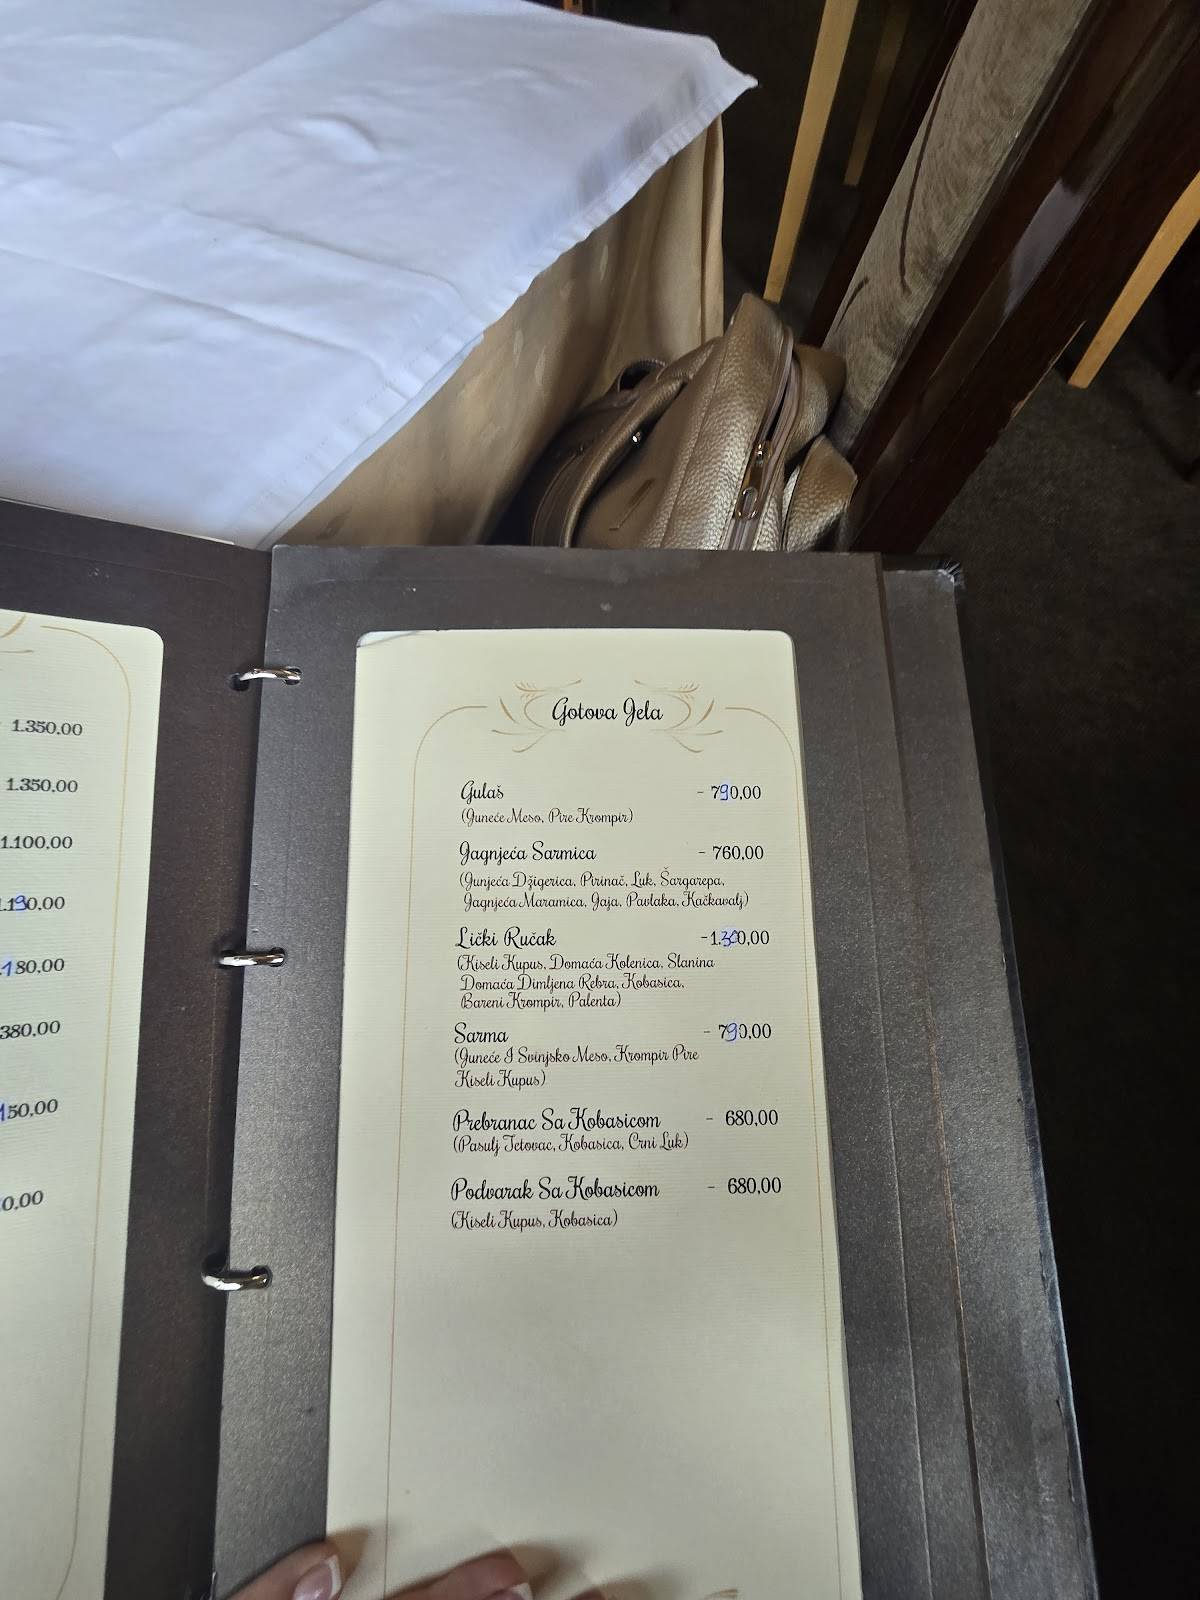 1.350,00
1.350,00
1.100,00
1.190,00
.180,00
380,00
150,00
0,00
Gotova Jela
Gulaš - 790,00
(Juneće Meso, Pire Krompir)
Jagnjeća Sarmica - 760,00
(Junjeća Džigerica, Pirinač, Luk, Šargarepa,
Jagnjeća Maramica, Jaja, Pavlaka, Kačkavalj)
Lički Ručak -1.300,00
(Kiseli Kupus, Domaća Kolenica, Slanina
Domaća Dimljena Rebra, Kobasica,
Bareni Krompir, Palenta)
Sarma - 790,00
(Juneće I Svinjsko Meso, Krompir Pire
Kiseli Kupus)
Prebranac Sa Kobasicom - 680,00
(Pasulj Tetovac, Kobasica, Crni Luk)
Podvarak Sa Kobasicom - 680,00
(Kiseli Kupus, Kobasica)